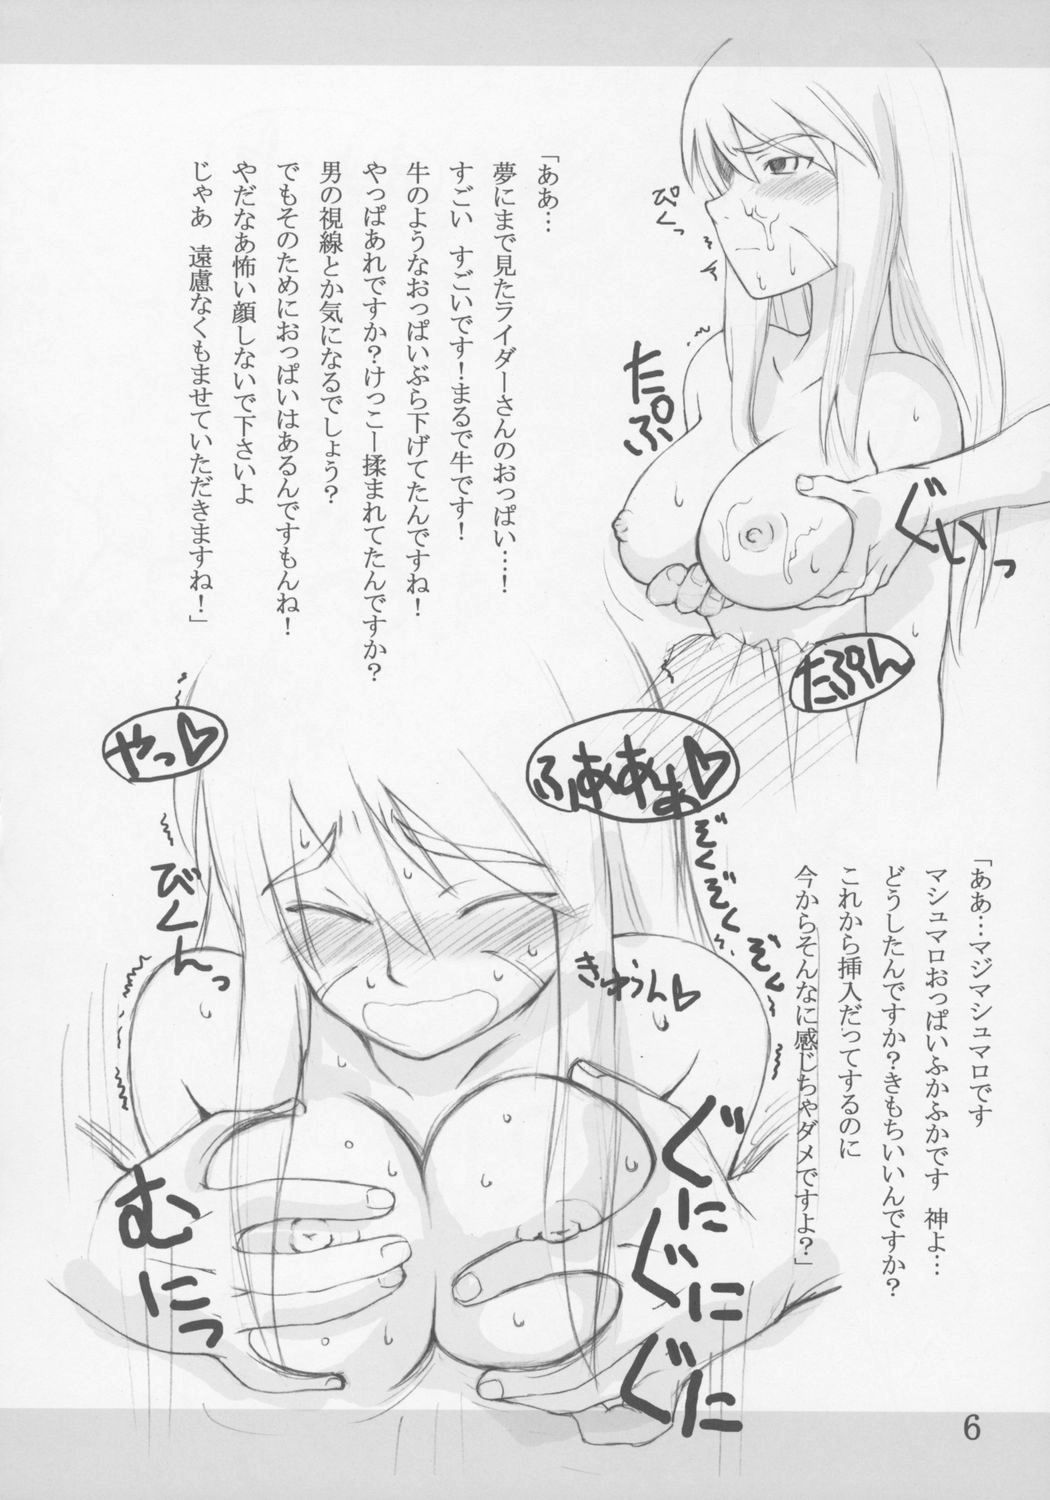 「ああ…
夢にまで見たライダーさんのおっぱい…！
すごい　すごいです！まるで牛です！
牛のようなおっぱいぶら下げてたんですね！
やっぱあれですか？けっこー揉まれてたんですか？
男の視線とか気になるでしょう？
でもそのためにおっぱいはあるんですもんね！
やだなあ怖い顔しないで下さいよ
じゃあ　遠慮なくもませていただきますね！」
ぴくっ
たぷ
ぐいっ
たぷん
やっ♡
ふああぁん♡
ぞくぞくぞく
びくんっ
きゅうん♡
「ああ…マジマシュマロです
マシュマロおっぱいふかふかです　神よ…
どうしたんですか？きもちいいんですか？
これから挿入だってするのに
今からそんなに感じちゃダメですよ？」
むにっ
ぐに
ぐに
ぐに
6